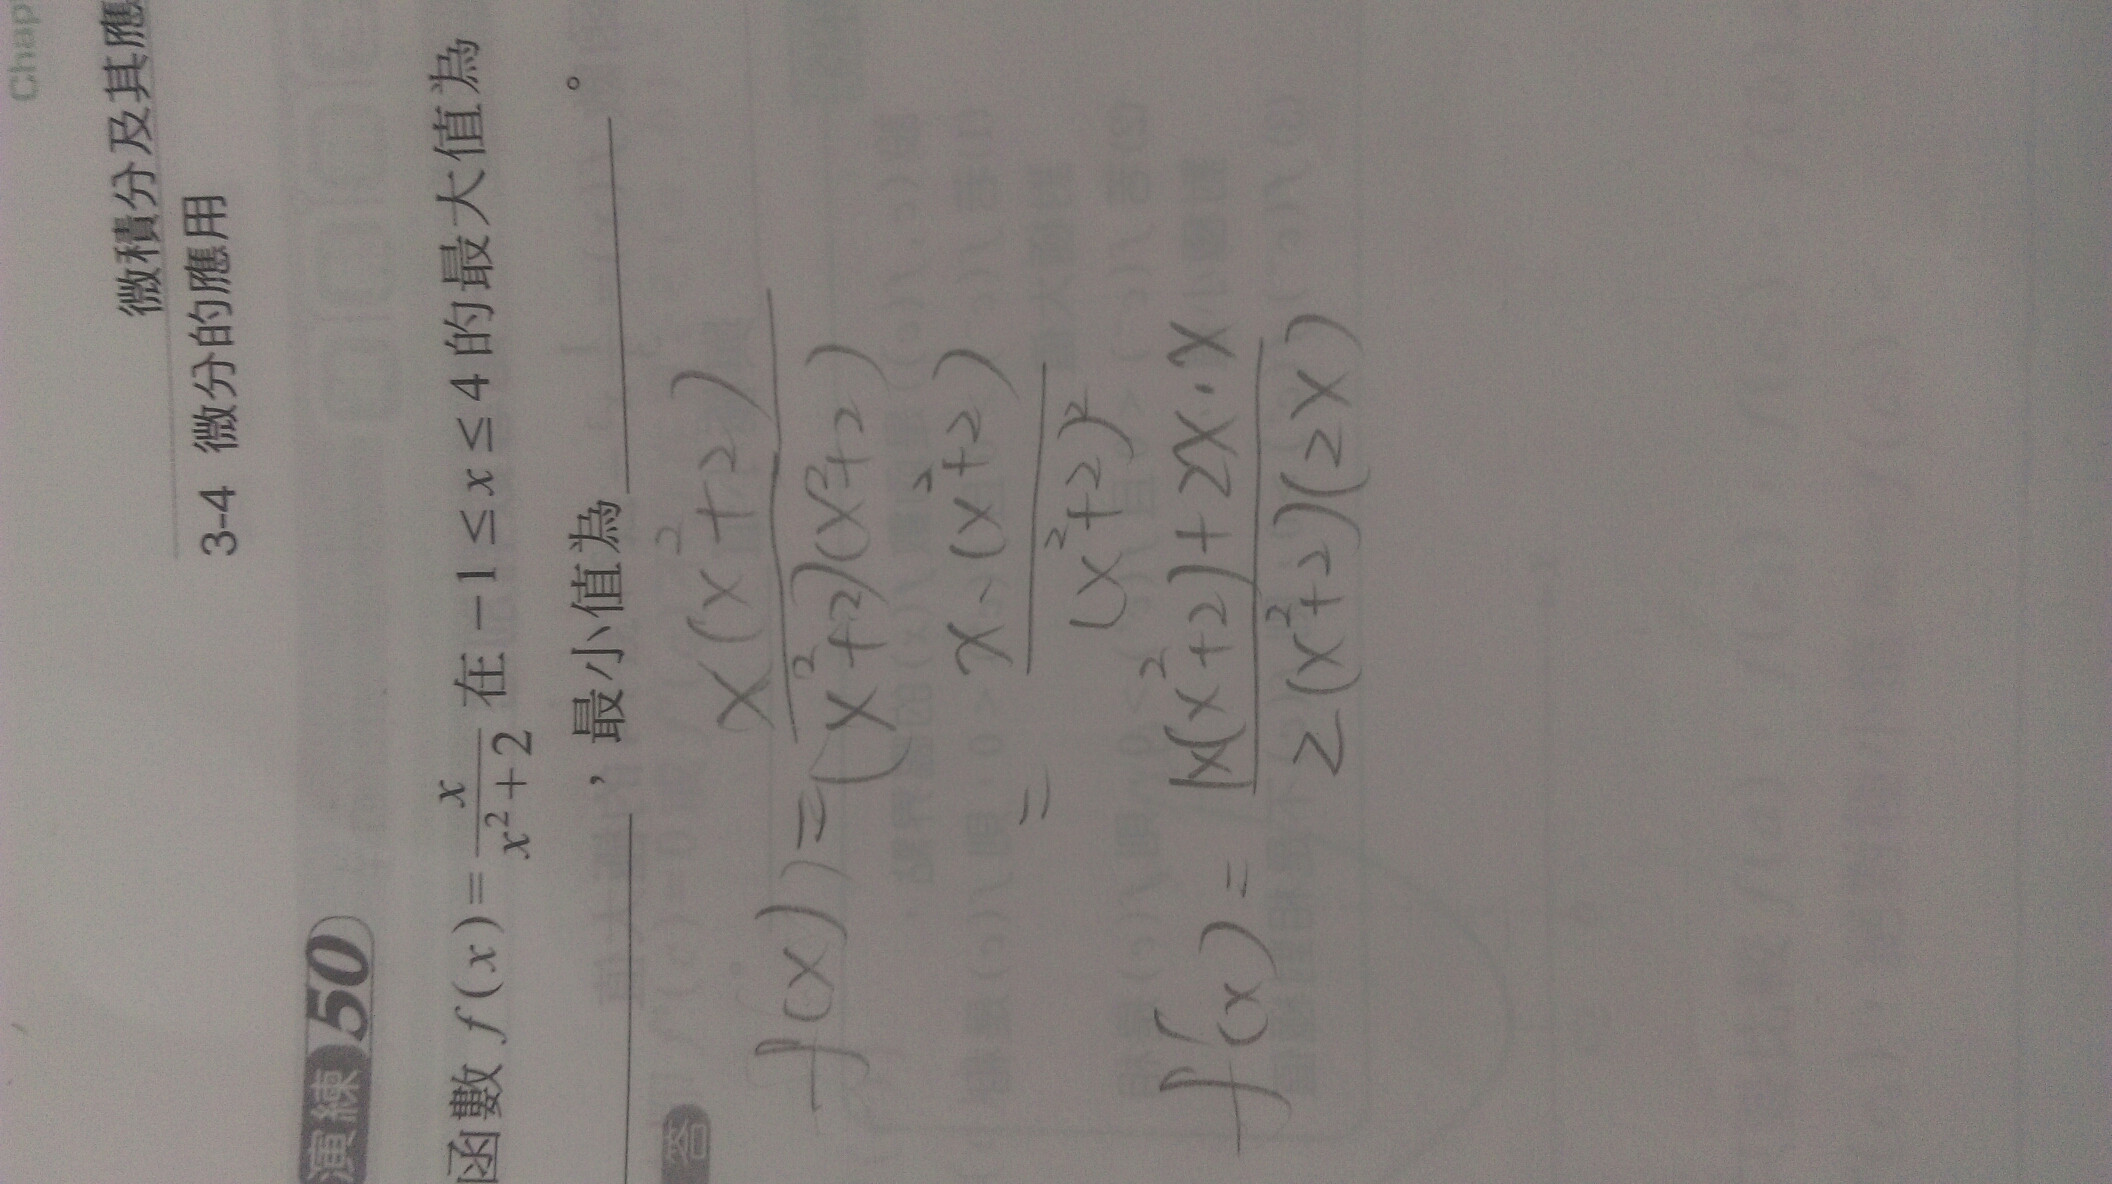 Chap
微積分及其應
3-4 微分的應用
演練 50
函數 f(x)=x/(x²+2) 在 −1≤x≤4 的最大值為
________，最小值為________。
答
f(x)=x(x²+2)/(x²+2)(x²+2)
=x·(x²+2)/(x²+2)²
f'(x)=1(x²+2)+2x·x/2(x²+2)(2x)